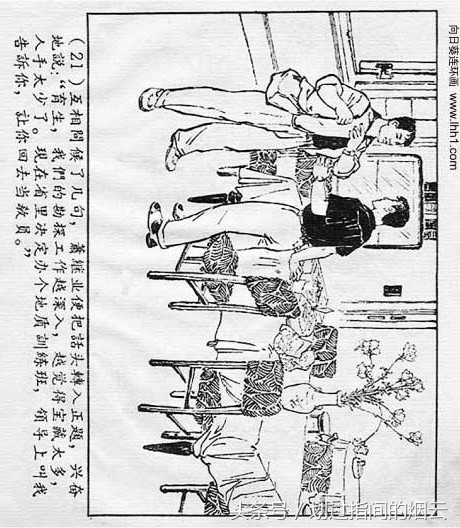 (21)互相問候了几句,蕭継业便把話头轉入正題,兴奋
地說:“育生,我們的勘探工作越深入,越覺得宝藏太多,
人手太少了。現在省里决定办个地质訓練班,領导上叫我
告訴你,让你回去当教員。”
向日葵连环画 www.lhh1.com
头条号 / 划过指间的烟云